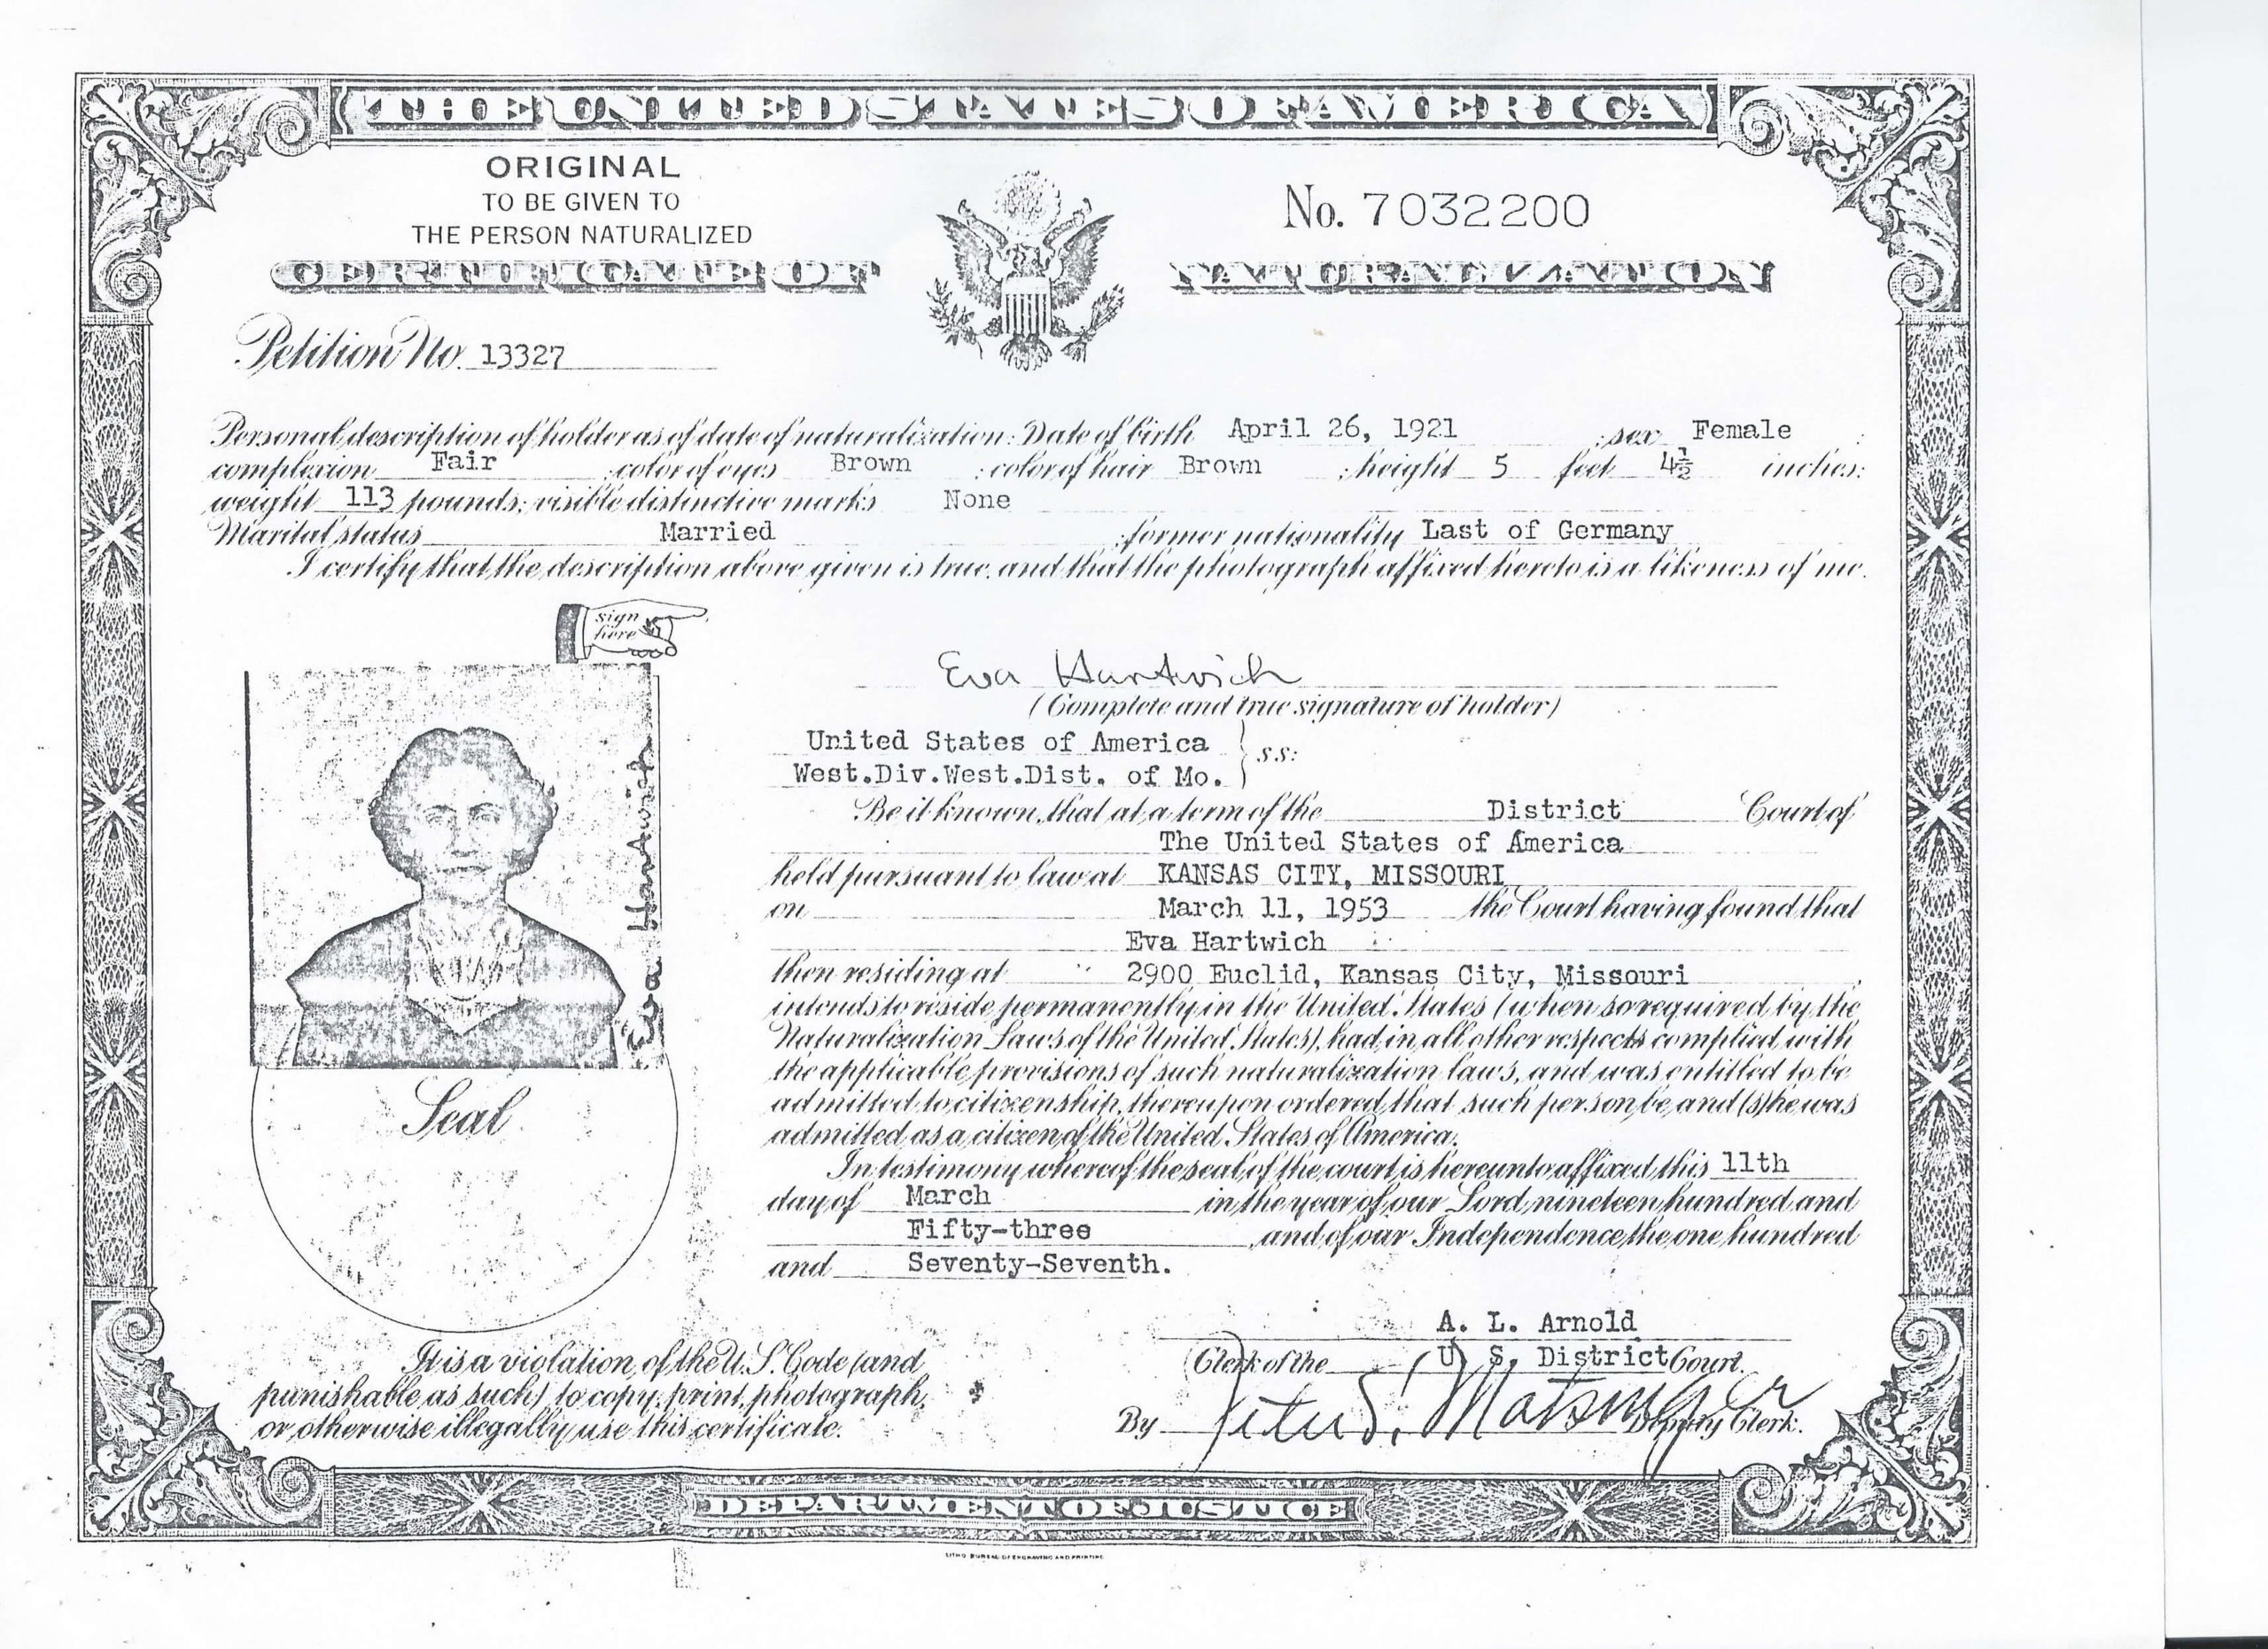 THE UNITED STATES OF AMERICA
ORIGINAL
TO BE GIVEN TO
THE PERSON NATURALIZED
No. 7032200
CERTIFICATE OF NATURALIZATION
Petition No. 13327
Personal description of holder as of date of naturalization: Date of birth April 26, 1921 ; sex Female ;
complexion Fair ; color of eyes Brown ; color of hair Brown ; height 5 feet 4½ inches;
weight 113 pounds; visible distinctive marks None
Marital status Married ; former nationality Last of Germany
I certify that the description above given is true, and that the photograph affixed hereto is a likeness of me.
sign
here
Eva Hartwich
(Complete and true signature of holder)
Eva Hartwich
United States of America
West.Div.West.Dist. of Mo. } ss:
Be it known, that at a term of the District Court of
The United States of America
held pursuant to law at KANSAS CITY, MISSOURI
on March 11, 1953 the Court having found that
Eva Hartwich
then residing at 2900 Euclid, Kansas City, Missouri,
intends to reside permanently in the United States (when so required by the
Naturalization Laws of the United States), had in all other respects complied with
the applicable provisions of such naturalization laws, and was entitled to be
admitted to citizenship, thereupon ordered that such person be and (s)he was
admitted as a citizen of the United States of America.
In testimony whereof the seal of the court is hereunto affixed this 11th
day of March in the year of our Lord nineteen hundred and
Fifty-three and of our Independence the one hundred
and Seventy-Seventh.
Seal
A. L. Arnold
Clerk of the U. S. District Court.
By Deputy Clerk.
It is a violation of the U. S. Code (and
punishable as such) to copy, print, photograph,
or otherwise illegally use this certificate.
DEPARTMENT OF JUSTICE
LITHO BUREAU OF ENGRAVING AND PRINTING